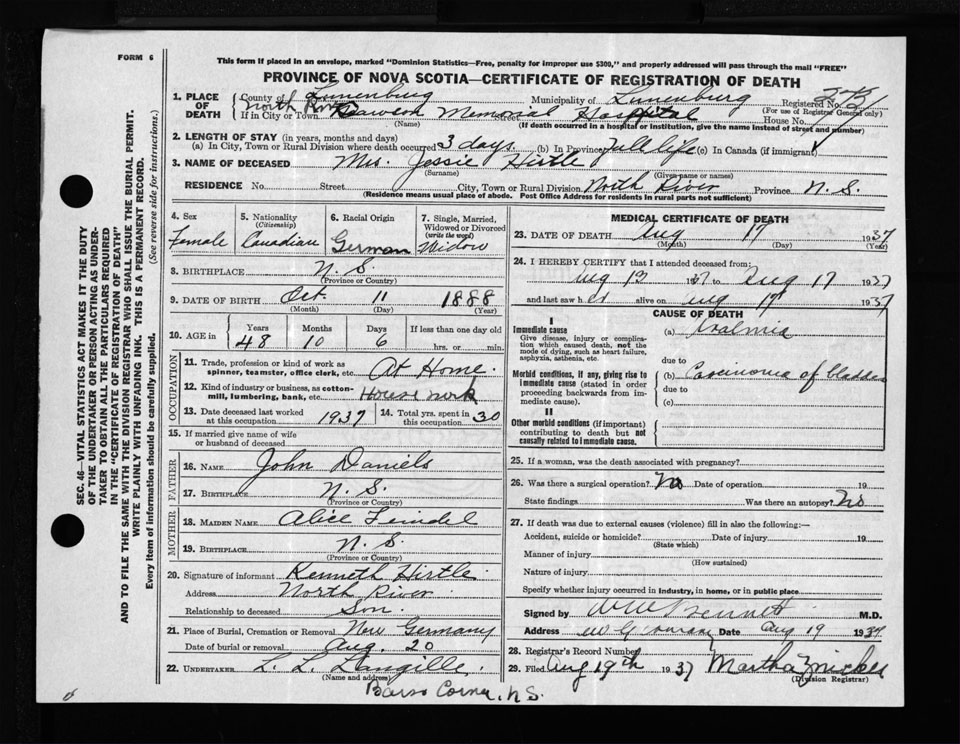 FORM 6
This form if placed in an envelope, marked "Dominion Statistics—Free, penalty for improper use $300," and properly addressed will pass through the mail "FREE"
PROVINCE OF NOVA SCOTIA—CERTIFICATE OF REGISTRATION OF DEATH
1. PLACE OF DEATH
County of Lunenburg Municipality of Lunenburg Registered No.
(For use of Registrar General only)
North River
If in City or Town Dawson Memorial Hospital House No.
(Name) (If death occurred in a hospital or institution, give the name instead of street and number)
2. LENGTH OF STAY (in years, months and days)
(a) In City, Town or Rural Division where death occurred 3 days (b) In Province full life (c) In Canada (if immigrant)
3. NAME OF DECEASED Mrs. Jessie Hirtle
(Surname) (Given name or names)
RESIDENCE No. Street City, Town or Rural Division North River Province N. S.
(Residence means usual place of abode. Post Office Address for residents in rural parts not sufficient)
4. Sex Female
5. Nationality (Citizenship) Canadian
6. Racial Origin German
7. Single, Married, Widowed or Divorced (write the word) Widow
8. BIRTHPLACE N. S.
(Province or Country)
9. DATE OF BIRTH Oct. 11 1888
(Month) (Day) (Year)
10. AGE in Years Months Days If less than one day old
48 10 6 hrs. or min.
OCCUPATION
11. Trade, profession or kind of work as spinner, teamster, office clerk, etc. At Home.
12. Kind of industry or business, as cotton-mill, lumbering, bank, etc. House work
13. Date deceased last worked at this occupation 1937
14. Total yrs. spent in this occupation 30
15. If married give name of wife or husband of deceased
FATHER
16. NAME John Daniels
17. Birthplace N. S.
(Province or Country)
MOTHER
18. MAIDEN NAME Alice Feindel
19. BIRTHPLACE N. S.
(Province or Country)
20. Signature of informant Kenneth Hirtle
Address North River
Relationship to deceased Son.
21. Place of Burial, Cremation or Removal New Germany
Date of burial or removal Aug. 20
22. UNDERTAKER L. L. Langille.
(Name and address)
Barss Corner, N S.
MEDICAL CERTIFICATE OF DEATH
23. DATE OF DEATH Aug 17 1937
(Month) (Day) (Year)
24. I HEREBY CERTIFY that I attended deceased from:
Aug 1937 to Aug 17 1937
and last saw her alive on Aug 17 1937
CAUSE OF DEATH
I
Immediate cause
Give disease, injury or complication which caused death, not the mode of dying, such as heart failure, asphyxia, asthenia, etc.
(a)
due to
Morbid conditions, if any, giving rise to immediate cause (stated in order proceeding backwards from immediate cause).
(b) Carcinoma of bladder
due to
(c)
II
Other morbid conditions (if important) contributing to death but not causally related to immediate cause.
25. If a woman, was the death associated with pregnancy?
26. Was there a surgical operation? No Date of operation 19
State findings Was there an autopsy? No
27. If death was due to external causes (violence) fill in also the following:—
Accident, suicide or homicide? Date of injury 19
(State which)
Manner of injury
(How sustained)
Nature of injury
Specify whether injury occurred in industry, in home, or in public place
Signed by Bennett M.D.
Address Date Aug 19 1937
28. Registrar's Record Number
29. Filed Aug 19th 1937 Martha Zwicker
(Division Registrar)
SEC. 46—VITAL STATISTICS ACT MAKES IT THE DUTY
OF THE UNDERTAKER OR PERSON ACTING AS UNDER-
TAKER TO OBTAIN ALL THE PARTICULARS REQUIRED
IN THE "CERTIFICATE OF REGISTRATION OF DEATH"
AND TO FILE THE SAME WITH THE DIVISION REGISTRAR WHO SHALL ISSUE THE BURIAL PERMIT.
WRITE PLAINLY WITH UNFADING INK. THIS IS A PERMANENT RECORD.
Every item of information should be carefully supplied. (See reverse side for instructions.)